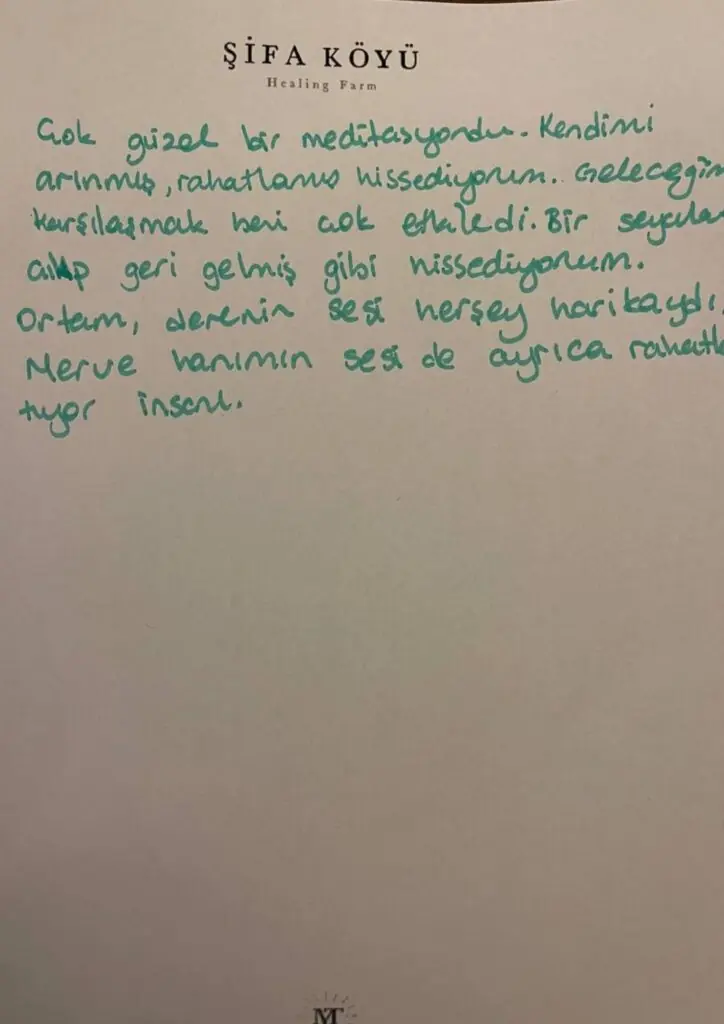 ŞİFA KÖYÜ
Healing Farm
Çok güzel bir meditasyondu. Kendimi
arınmış, rahatlamış hissediyorum. Geleceğim
karşılaşmak beni çok etkiledi. Bir seyahate
çıkıp geri gelmiş gibi hissediyorum.
Ortam, derenin sesi herşey harikaydı.
Merve hanımın sesi de ayrıca rahatla
tıyor insanı.
MT